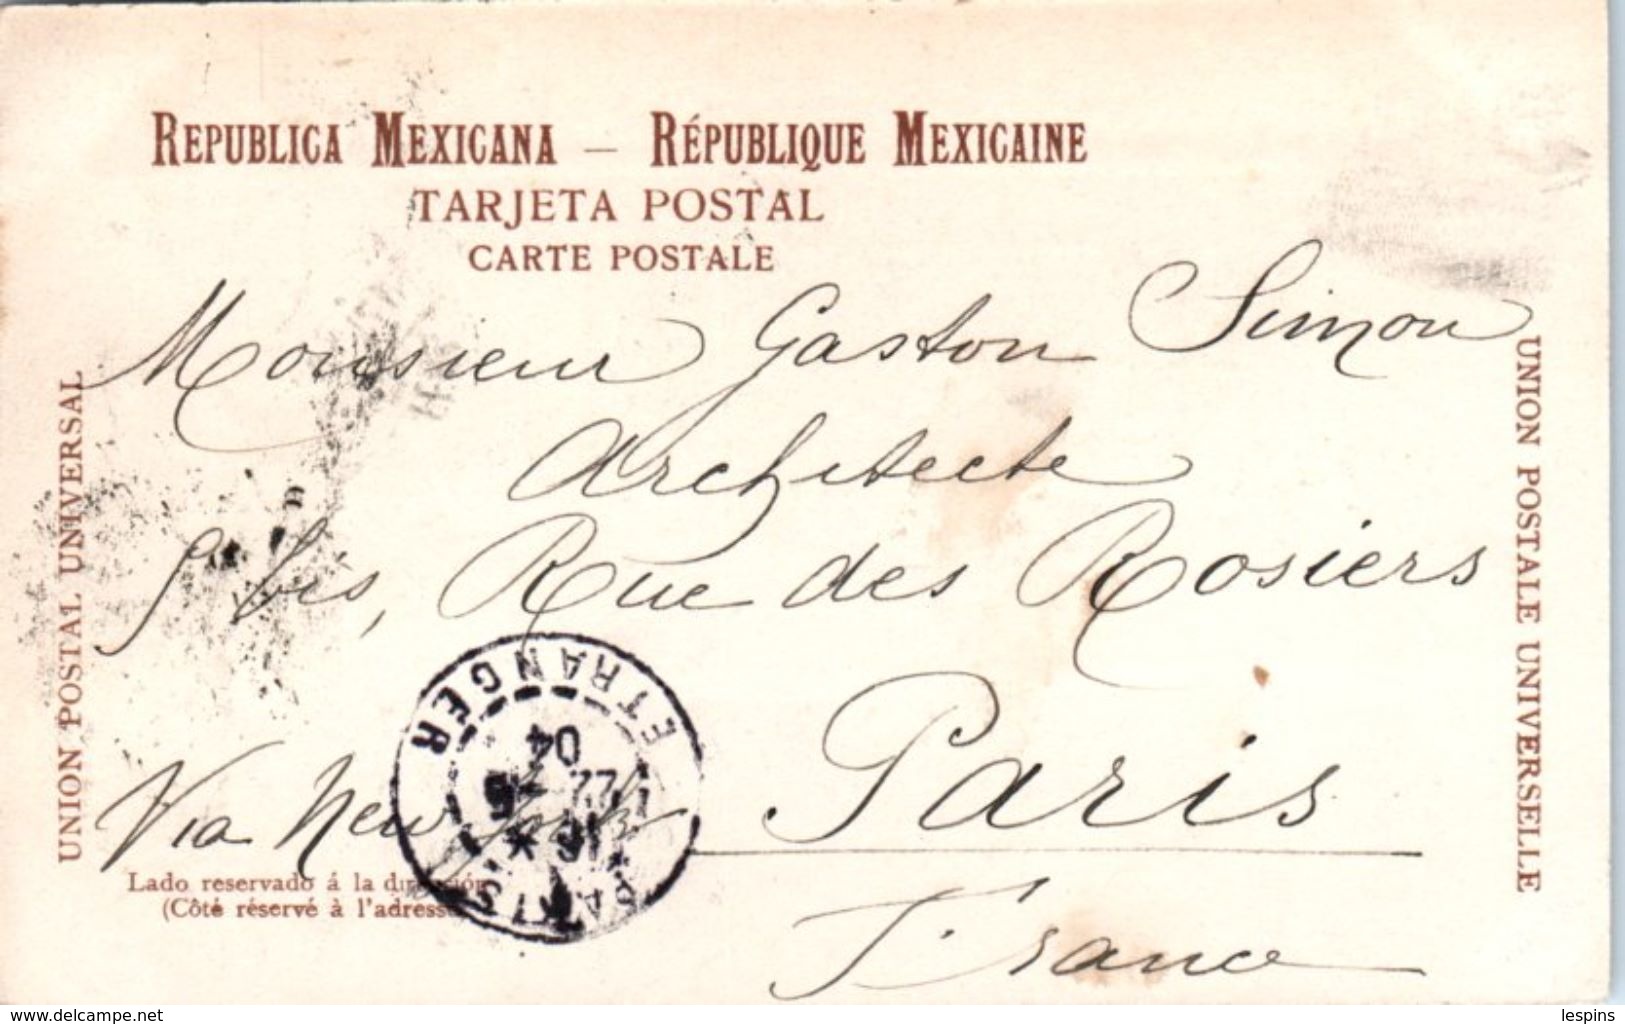 REPUBLICA MEXICANA – RÉPUBLIQUE MEXICAINE
TARJETA POSTAL
CARTE POSTALE
UNION POSTAL UNIVERSAL
UNION POSTALE UNIVERSELLE
Monsieur Gaston Simon
Architecte
bis, Rue des Rosiers
Paris
Via New York
France
Lado reservado á la dirección
(Côté réservé à l'adresse
PARIS ETRANGER
04
delcampe.net
lespins